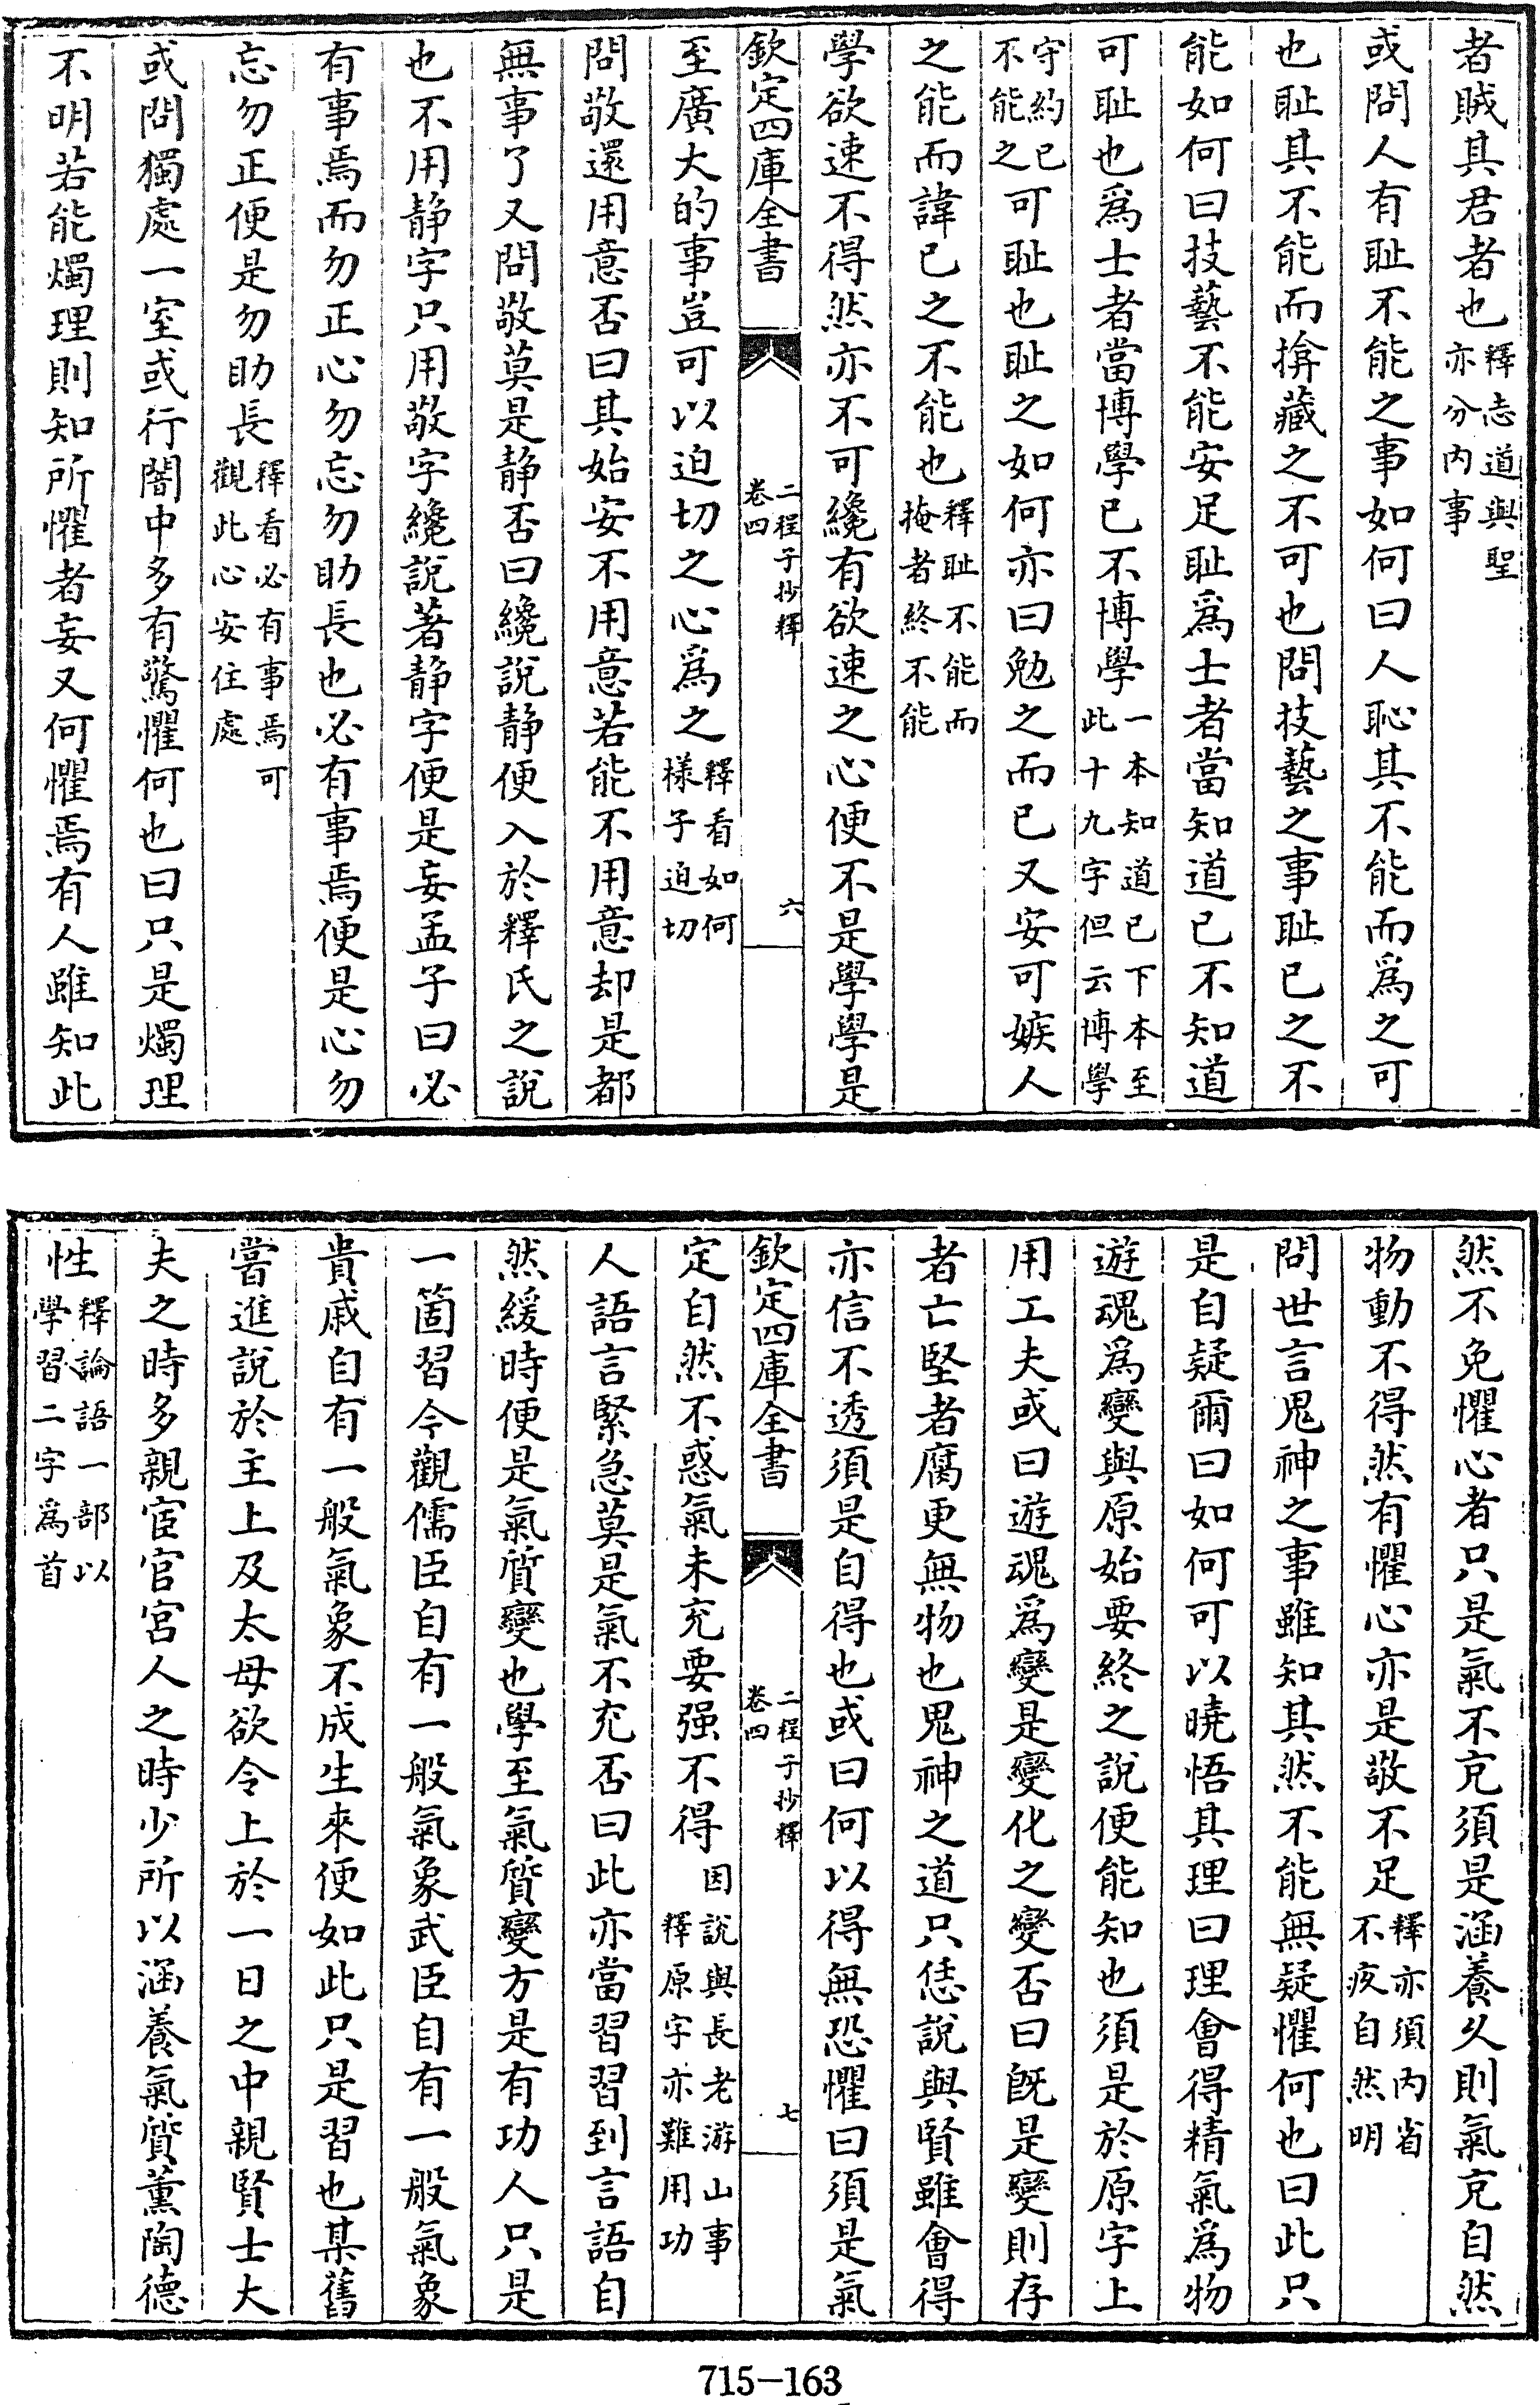 者賊其君者也釋志道與聖亦分内事
或問人有耻不能之事如何曰人恥其不能而爲之可
也耻其不能而揜藏之不可也問技藝之事耻已之不
能如何曰技藝不能安足耻爲士者當知道已不知道
可耻也爲士者當博學已不博學一本知道已下本至此十九字但云博學
守約已不能之可耻也耻之如何亦曰勉之而已又安可嫉人
之能而諱已之不能也釋耻不能而掩者終不能
學欲速不得然亦不可纔有欲速之心便不是學學是
欽定四庫全書
二程子抄釋
卷四
六
至廣大的事豈可以迫切之心爲之釋看如何樣子迫切
問敬還用意否曰其始安不用意若能不用意却是都
無事了又問敬莫是静否曰纔説静便入於釋氏之説
也不用静字只用敬字纔説著静字便是妄孟子曰必
有事焉而勿正心勿忘勿助長也必有事焉便是心勿
忘勿正便是勿助長釋看必有事焉可觀此心安住處
或問獨處一室或行闇中多有驚懼何也曰只是燭理
不明若能燭理則知所懼者妄又何懼焉有人雖知此
然不免懼心者只是氣不充須是涵養久則氣充自然
物動不得然有懼心亦是敬不足釋亦須内省不疚自然明
問世言鬼神之事雖知其然不能無疑懼何也曰此只
是自疑爾曰如何可以曉悟其理曰理會得精氣爲物
遊魂爲變與原始要終之説便能知也須是於原字上
用工夫或曰遊魂爲變是變化之變否曰既是變則存
者亡堅者腐更無物也鬼神之道只恁説與賢雖會得
亦信不透須是自得也或曰何以得無恐懼曰須是氣
欽定四庫全書
二程子抄釋
卷四
七
定自然不惑氣未充要强不得因説與長老游山事釋原字亦難用功
人語言緊急莫是氣不充否曰此亦當習習到言語自
然緩時便是氣質變也學至氣質變方是有功人只是
一箇習今觀儒臣自有一般氣象武臣自有一般氣象
貴戚自有一般氣象不成生來便如此只是習也某舊
嘗進説於主上及太母欲令上於一日之中親賢士大
夫之時多親宦官宮人之時少所以涵養氣質薰陶德
性釋論語一部以學習二字爲首
715-163